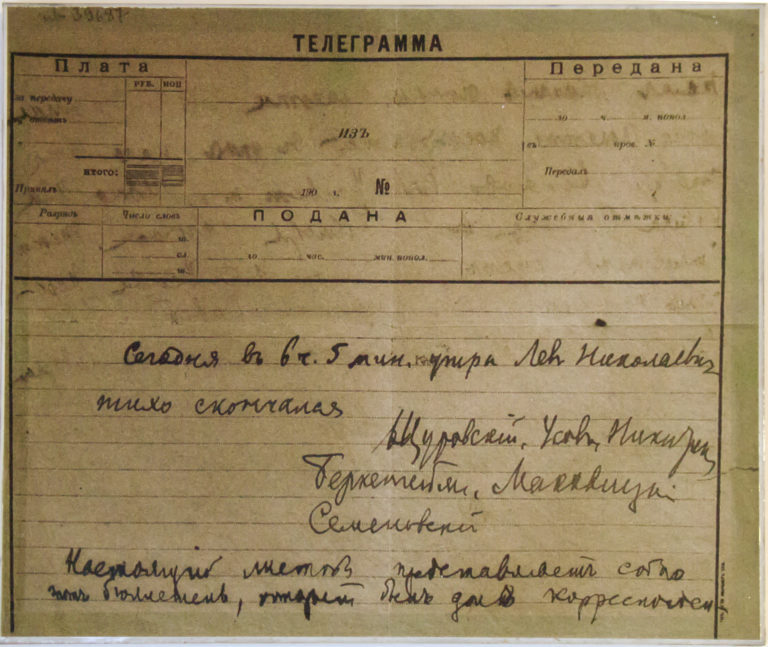 39687
ТЕЛЕГРАММА
Плата
РУБ. КОП
за передачу
Итого:
Принялъ
ИЗЪ
190 г. №
Передана
го ч. м. попол
въ пров. №
Передалъ
Разрядъ
Число словъ
ПОДАНА
го час. мин. попол.
Служебныя отмѣтки
Сегодня въ 6 ч. 5 мин. утра Левъ Николаевич
тихо скончался
Щуровскій, Усовъ, Никитин
Беркенгеймъ, Маковицкій
Семеновскій
Настоящій листокъ представляетъ собою
тотъ бюллетень, который былъ данъ корреспонден